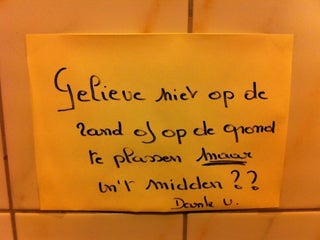 Gelieve niet op de
rand of op de grond
te plassen maar
in't midden ??
Dank U.